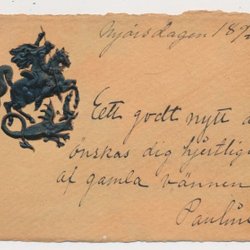 Nyårsdagen 187
Ett godt nytt å
önskas dig hjertlig
af gamla vännen
Paulin